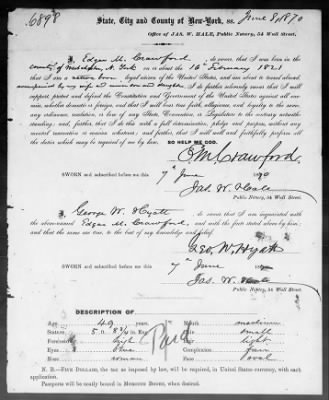 6898
State, City and County of New-York, ss. June 8, 1870
Office of JAS. W. HALE, Public Notary, 54 Wall Street.
I, Edgar M. Crawford, do swear, that I was born in the
County of N. York on or about the 16th February 1821
that I am a native born, loyal citizen of the United States, and am about to travel abroad,
accompanied by my wife and
support, protect and defend the Constitution and Government of the United States, against all ene-
mies, whether domestic or foreign, and that I will bear true faith, allegiance, and loyalty to the same, any
ordinance, resolution, or law of any State, Convention, or Legislature to the contrary notwith-
standing; and, further, that I do this with a full determination, pledge and purpose, without any
mental reservation or evasion whatsoever; and further, that I will well and faithfully perform all
the duties which may be required of me by law.
SO HELP ME GOD.
E M Crawford
SWORN and subscribed before me this
7th June 70
Jas. W. Hale
Public Notary, 54 Wall Street.
I, George W. Hyatt do swear, that I am acquainted with
the above-named Edgar M. Crawford, and
and that the same are true, to the best of my knowledge and belief.
Geo. W. Hyatt
SWORN and subscribed before me this
7th June
Jas. W. Hale
Public Notary, 54 Wall Street.
DESCRIPTION OF
Age 49 years Mouth medium
Stature 5 ft 8 3/4 in Chin small
Forehead high Hair light
Eyes blue Complexion fair
Nose roman Face oval
Paid
N. B.—FIVE DOLLARS, the tax as imposed by law, will be required, in United States currency, with each
application.
Passports will be neatly bound in MOROCCO BOOKS, when desired.